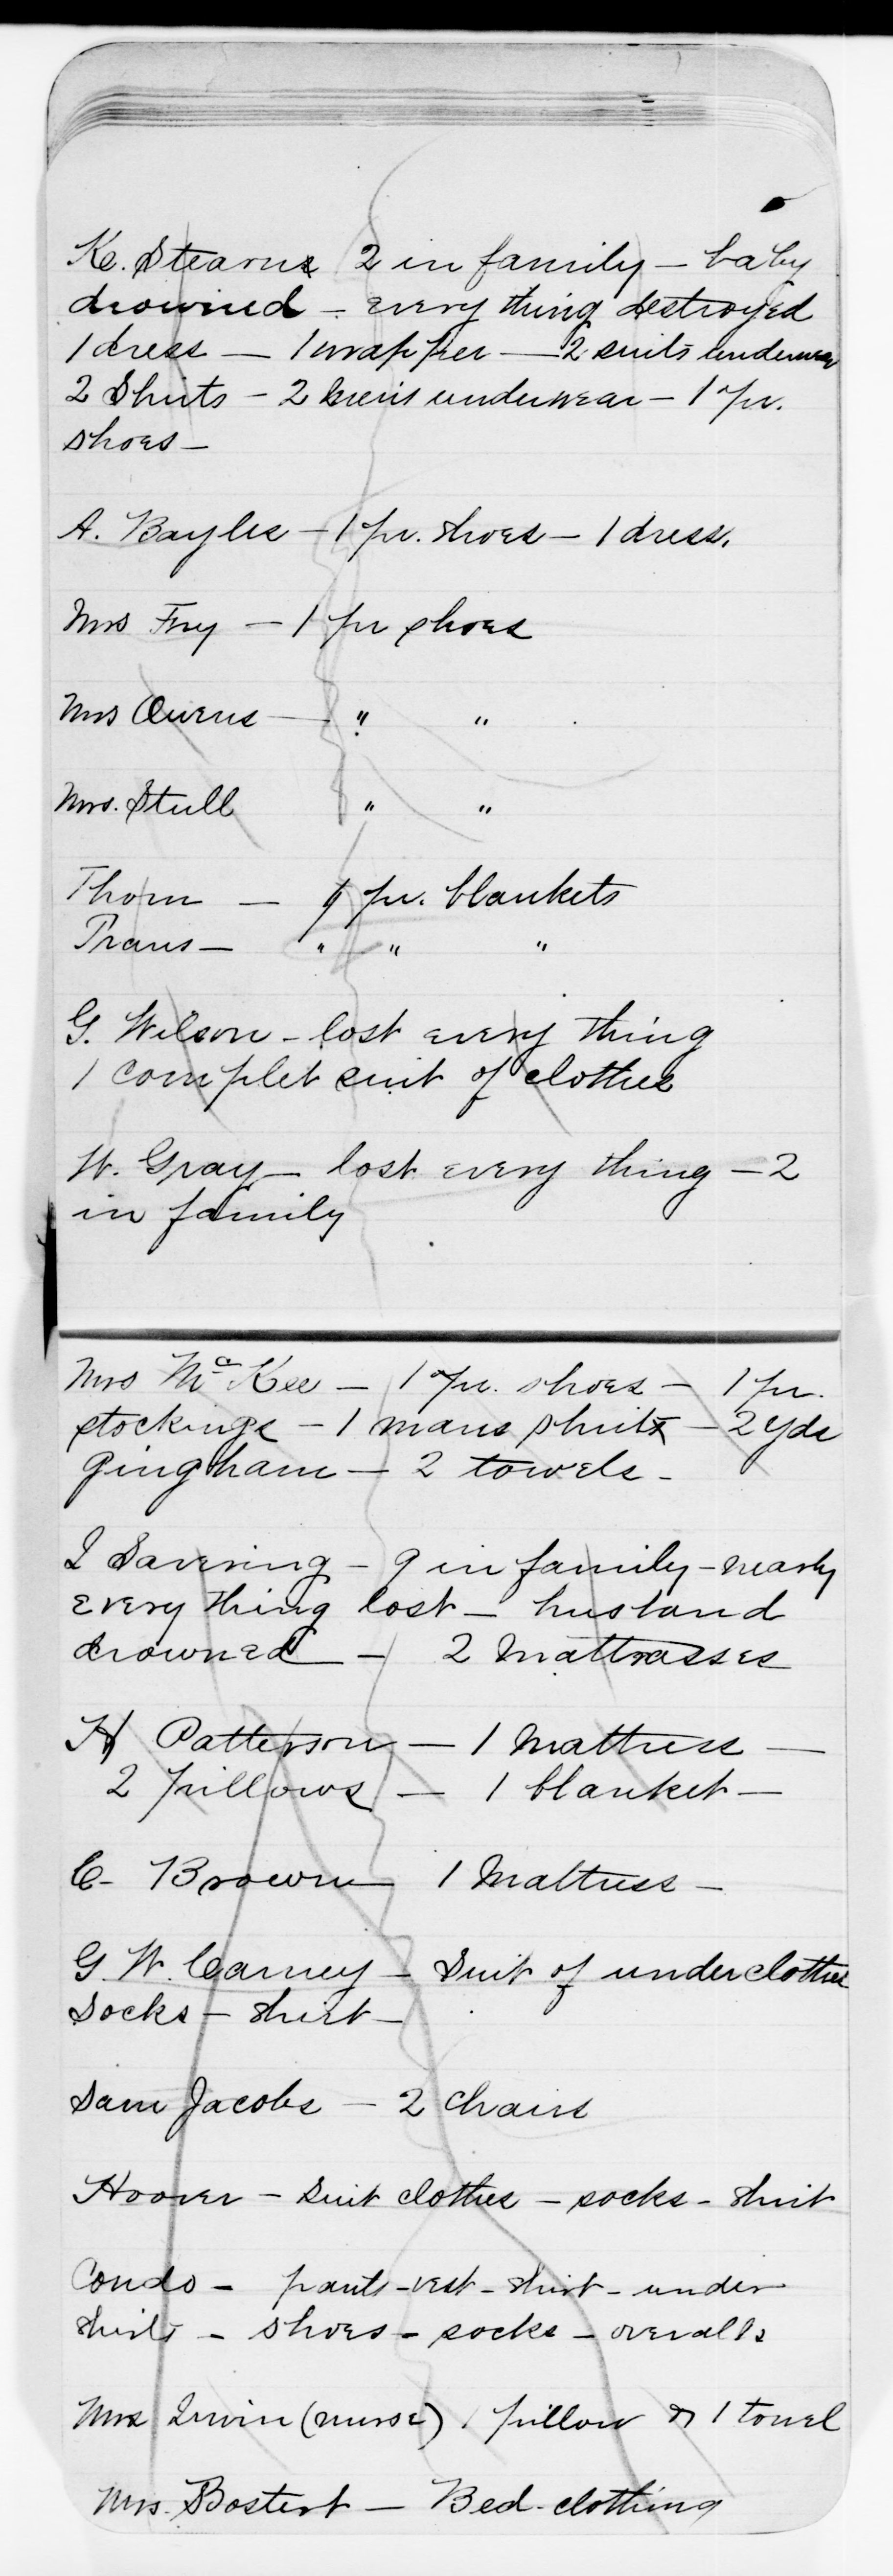 Ke. Stearns 2 in family – baby
drowned – every thing destroyed
1 dress – 1 wrapper – 2 suits underwear
2 Shirts – 2 men's underwear – 1 pr.
shoes –
A. Bayles – 1 pr. shoes – 1 dress.
Mrs Fry – 1 pr shoes
Mrs Owens – " "
Mrs. Stull " "
Thorn – 1 pr. blankets
Prans – " " "
G. Wilson – lost every thing
1 complet suit of clothes
W. Gray – lost every thing – 2
in family
Mrs McKee – 1 pr. shoes – 1 pr.
stockings – 1 mans shirt – 2 yds
gingham – 2 towels –
I Savering – 9 in family – nearly
every thing lost – husband
drowned – 2 Mattrasses
H Patterson – 1 Mattress –
2 pillows – 1 blanket –
C – Brown 1 Mattress –
G. W. Carney – Suit of underclothes
Socks – shirt –
Sam Jacobs – 2 chairs
Hoover – Suit clothes – socks – shirt
Condo – pants – vest – shirt – under
shirts – shoes – socks – overalls
Mrs Irwin (nurse) 1 pillow & 1 towel
Mrs. Bostert – Bed-clothing